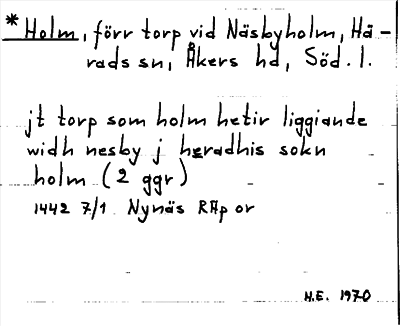 * Holm, förr torp vid Näsbyholm, Hä-
rads sn, Åkers hd, Söd. l.
jt torp som holm hetir liggiande
widh nesby j heradhis sokn
holm (2 ggr)
1442 7/1 Nynäs RAp or
H.E. 1970